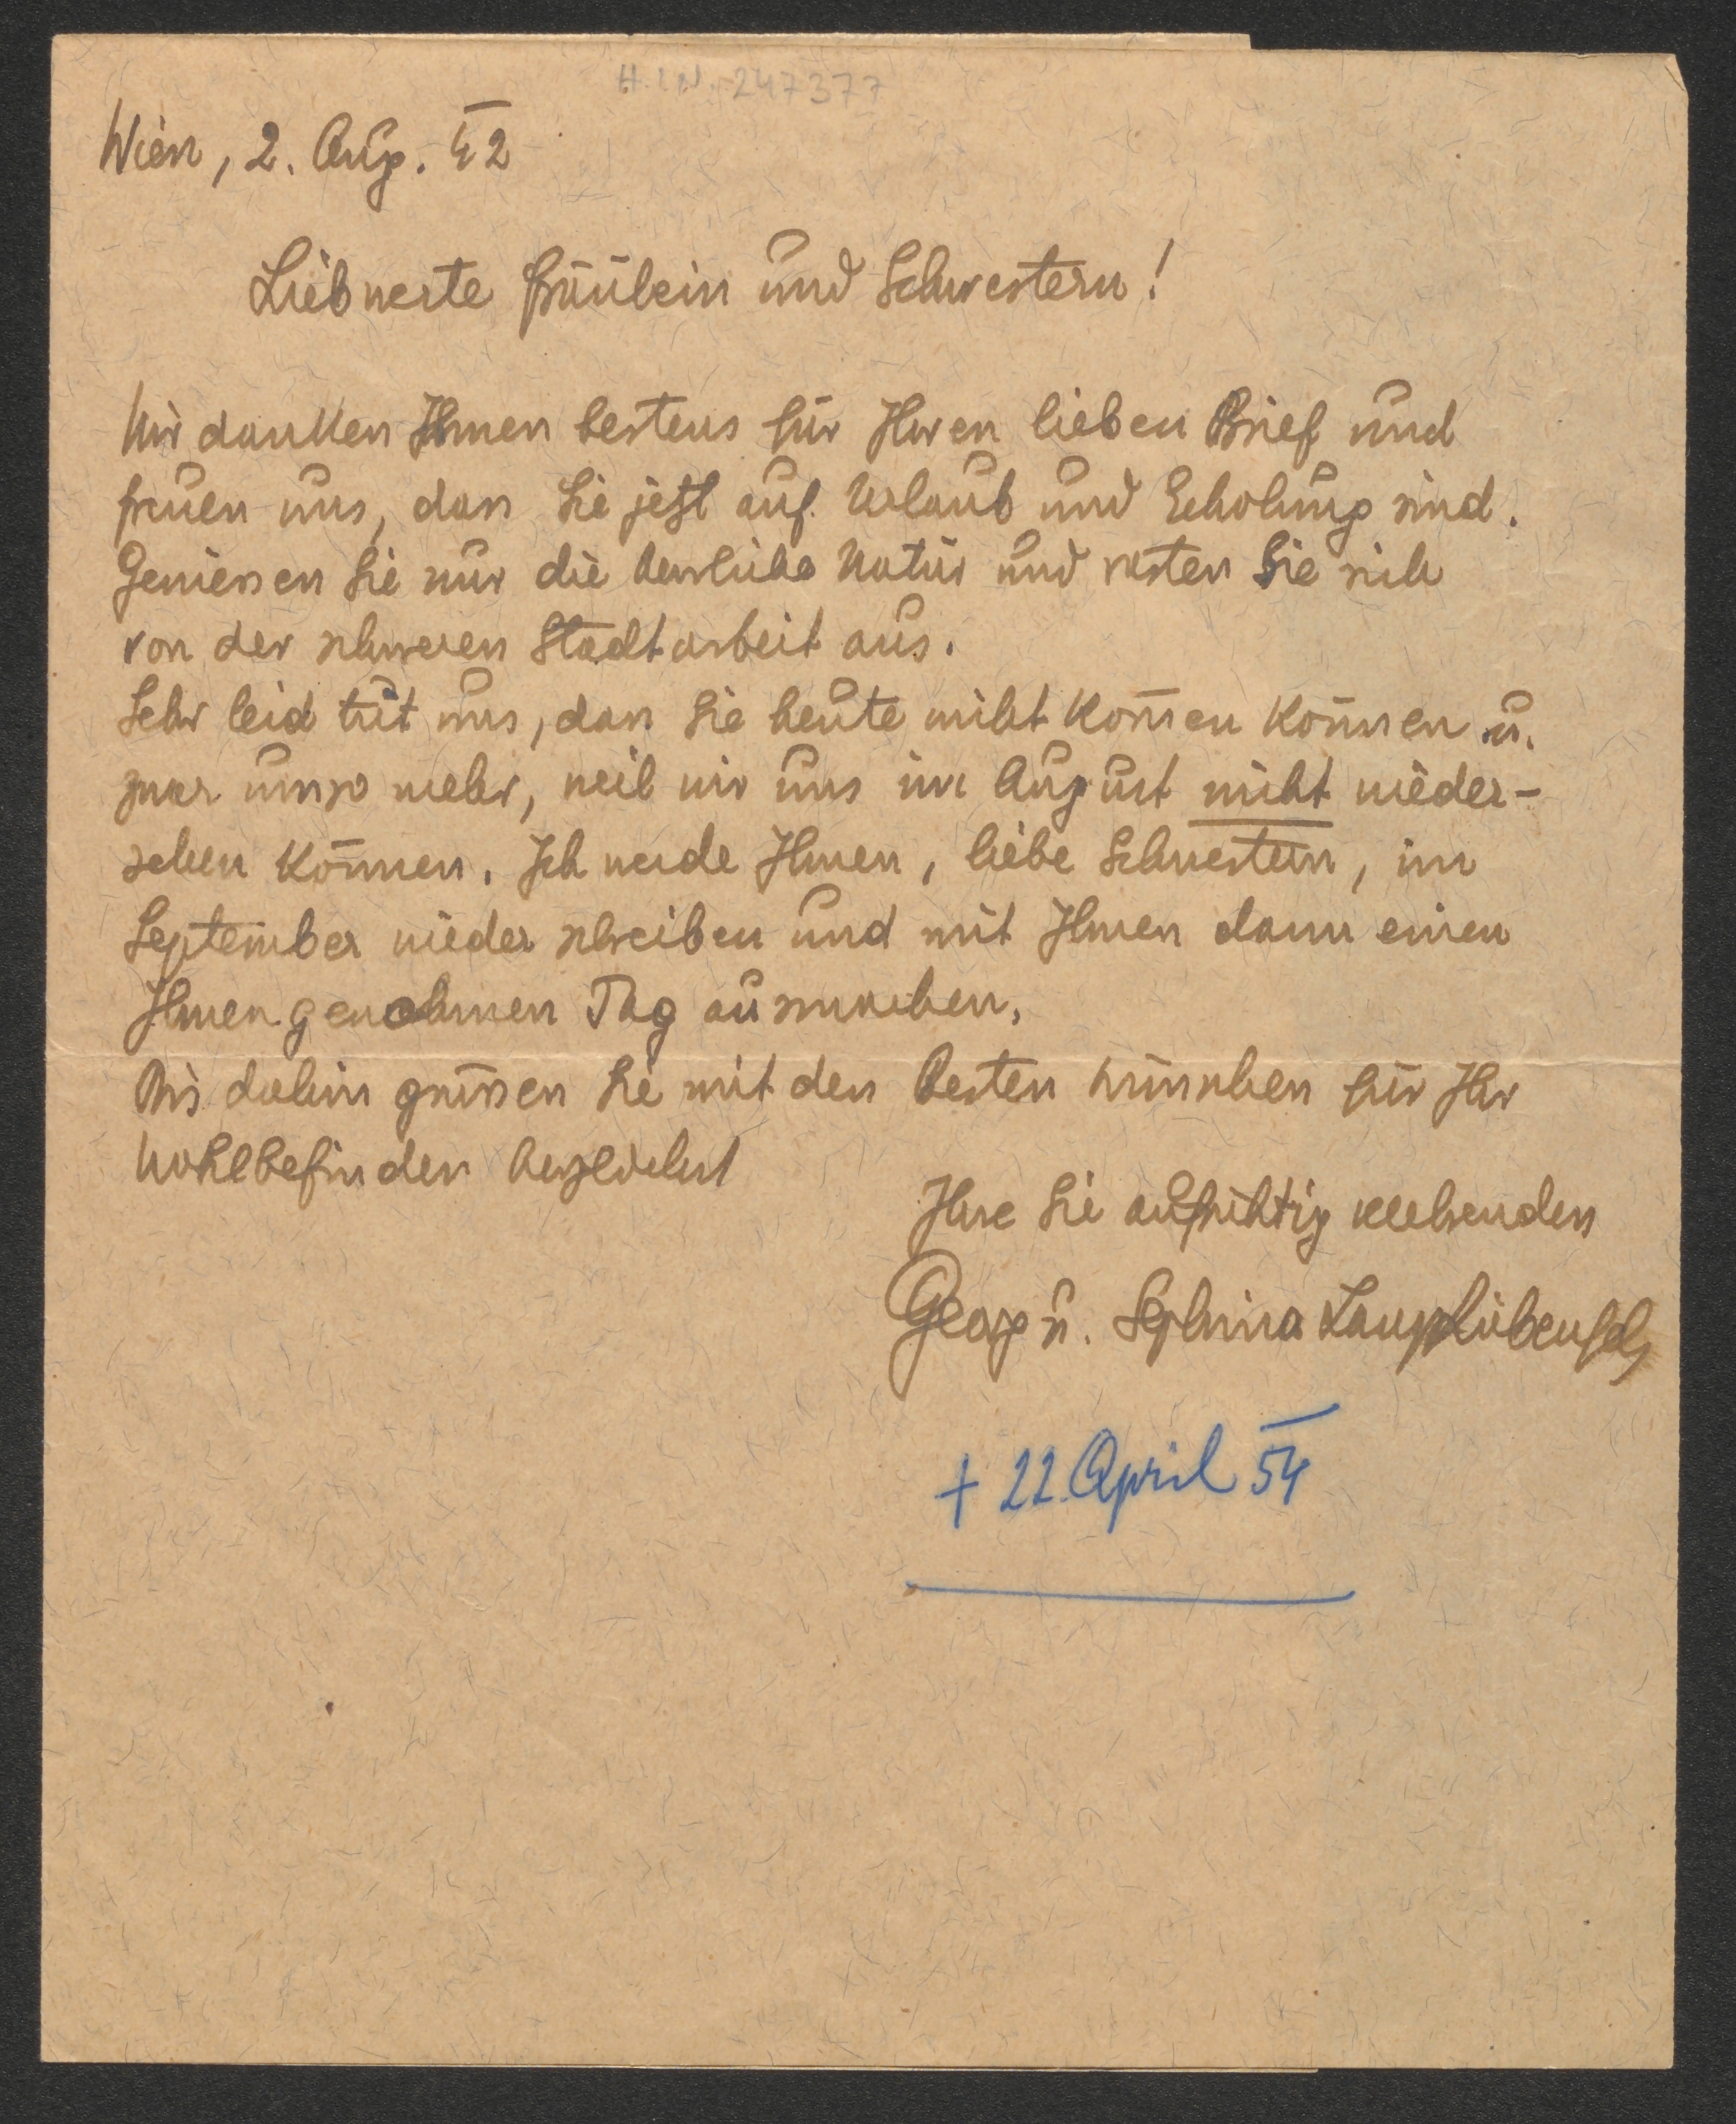 H.I.N. 247377
Wien, 2. Aug. 42
Liebwerte Fräulein und Schwestern!
Wir danken Ihnen bestens für Ihren lieben Brief und
freuen uns, dass Sie jetzt auf Urlaub und Erholung sind.
Geniessen Sie nur die herrliche Natur und rasten Sie sich
von der schweren Stadtarbeit aus.
Sehr leid tut uns, dass Sie heute nicht kom̅en können u.
zwar umso mehr, weil wir uns im August nicht wieder-
sehen können. Ich werde Ihnen, liebe Schwestern, im
September wieder schreiben und mit Ihnen dann einen
Ihnen genehmen Tag ausmachen.
Bis dahin grüssen Sie mit den besten Wünschen für Ihr
Wohlbefinden herzlichst
Ihre Sie aufrichtig verehrenden
Georg u. Lanz-Liebenfels
+ 22. April 54